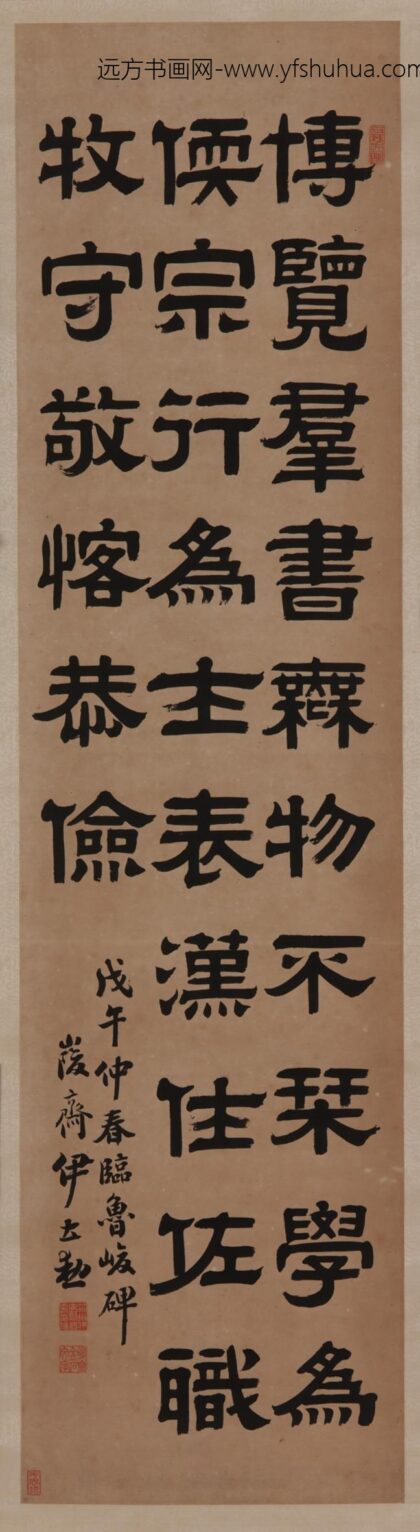 远方书画网-www.yfshuhua.com
博覽羣書無物不栞學為
偄宗行為士表漢仕佐職
牧守敬愘恭儉
戊午仲春臨魯峻碑
峻齋伊立勳